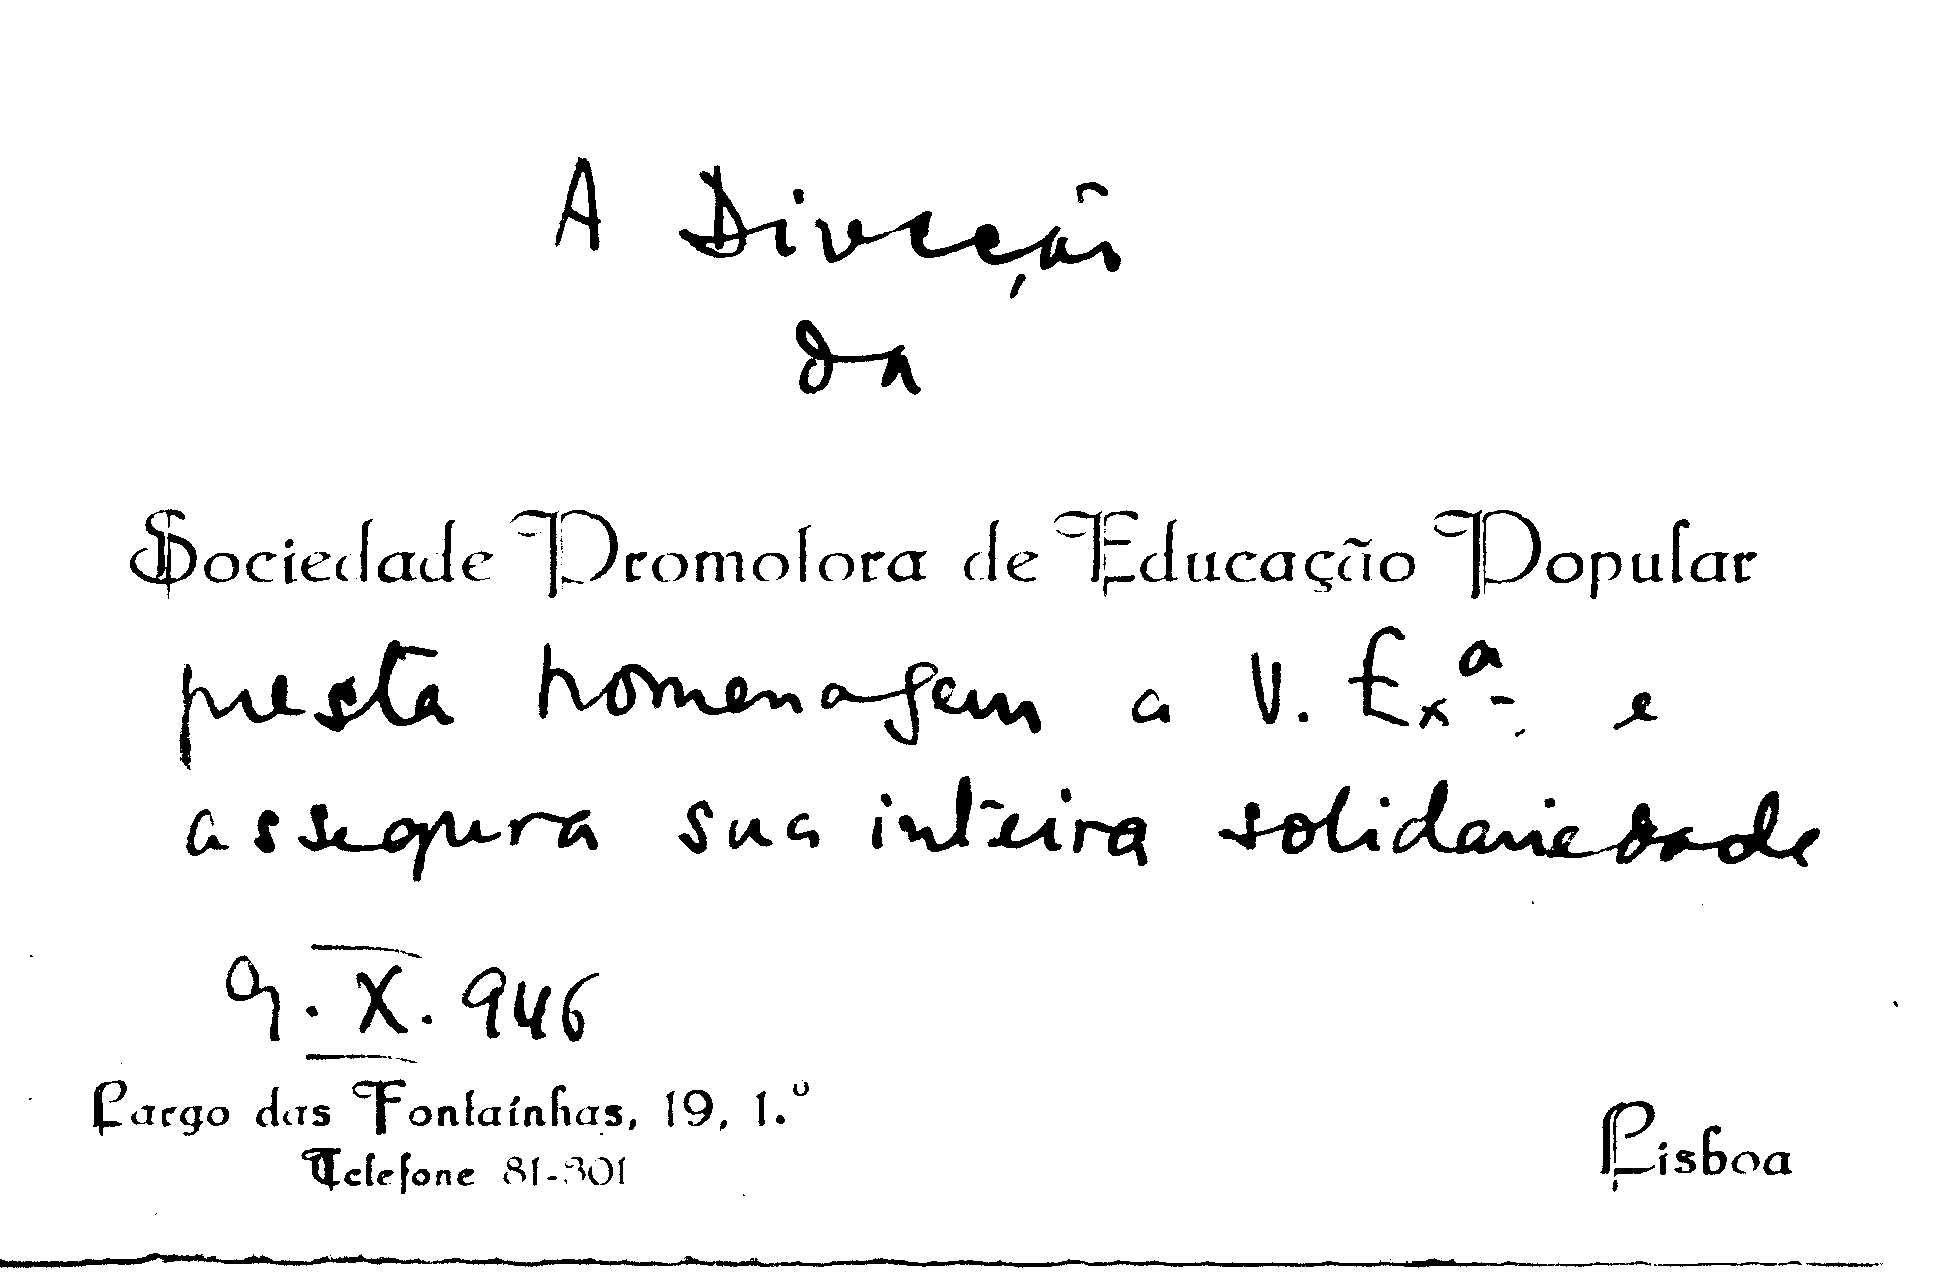 A Direcção
da
Sociedade Promotora de Educação Popular
presta homenagem a V. Exª. e
assegura sua inteira solidariedade
9. X. 946
Largo das Fontaínhas, 19, 1.º
Telefone 81-301
Lisboa